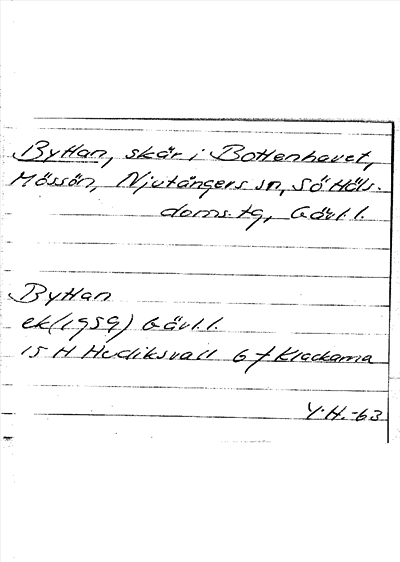 Byttan, skär i Bottenhavet,
Mössön, Njutångers sn, Sö Häls-
doms. tg, Gävl.l.
Byttan
ek(1959) Gävl.l.
15 H Hudiksvall 6 f Klackarna
Y.H.-63